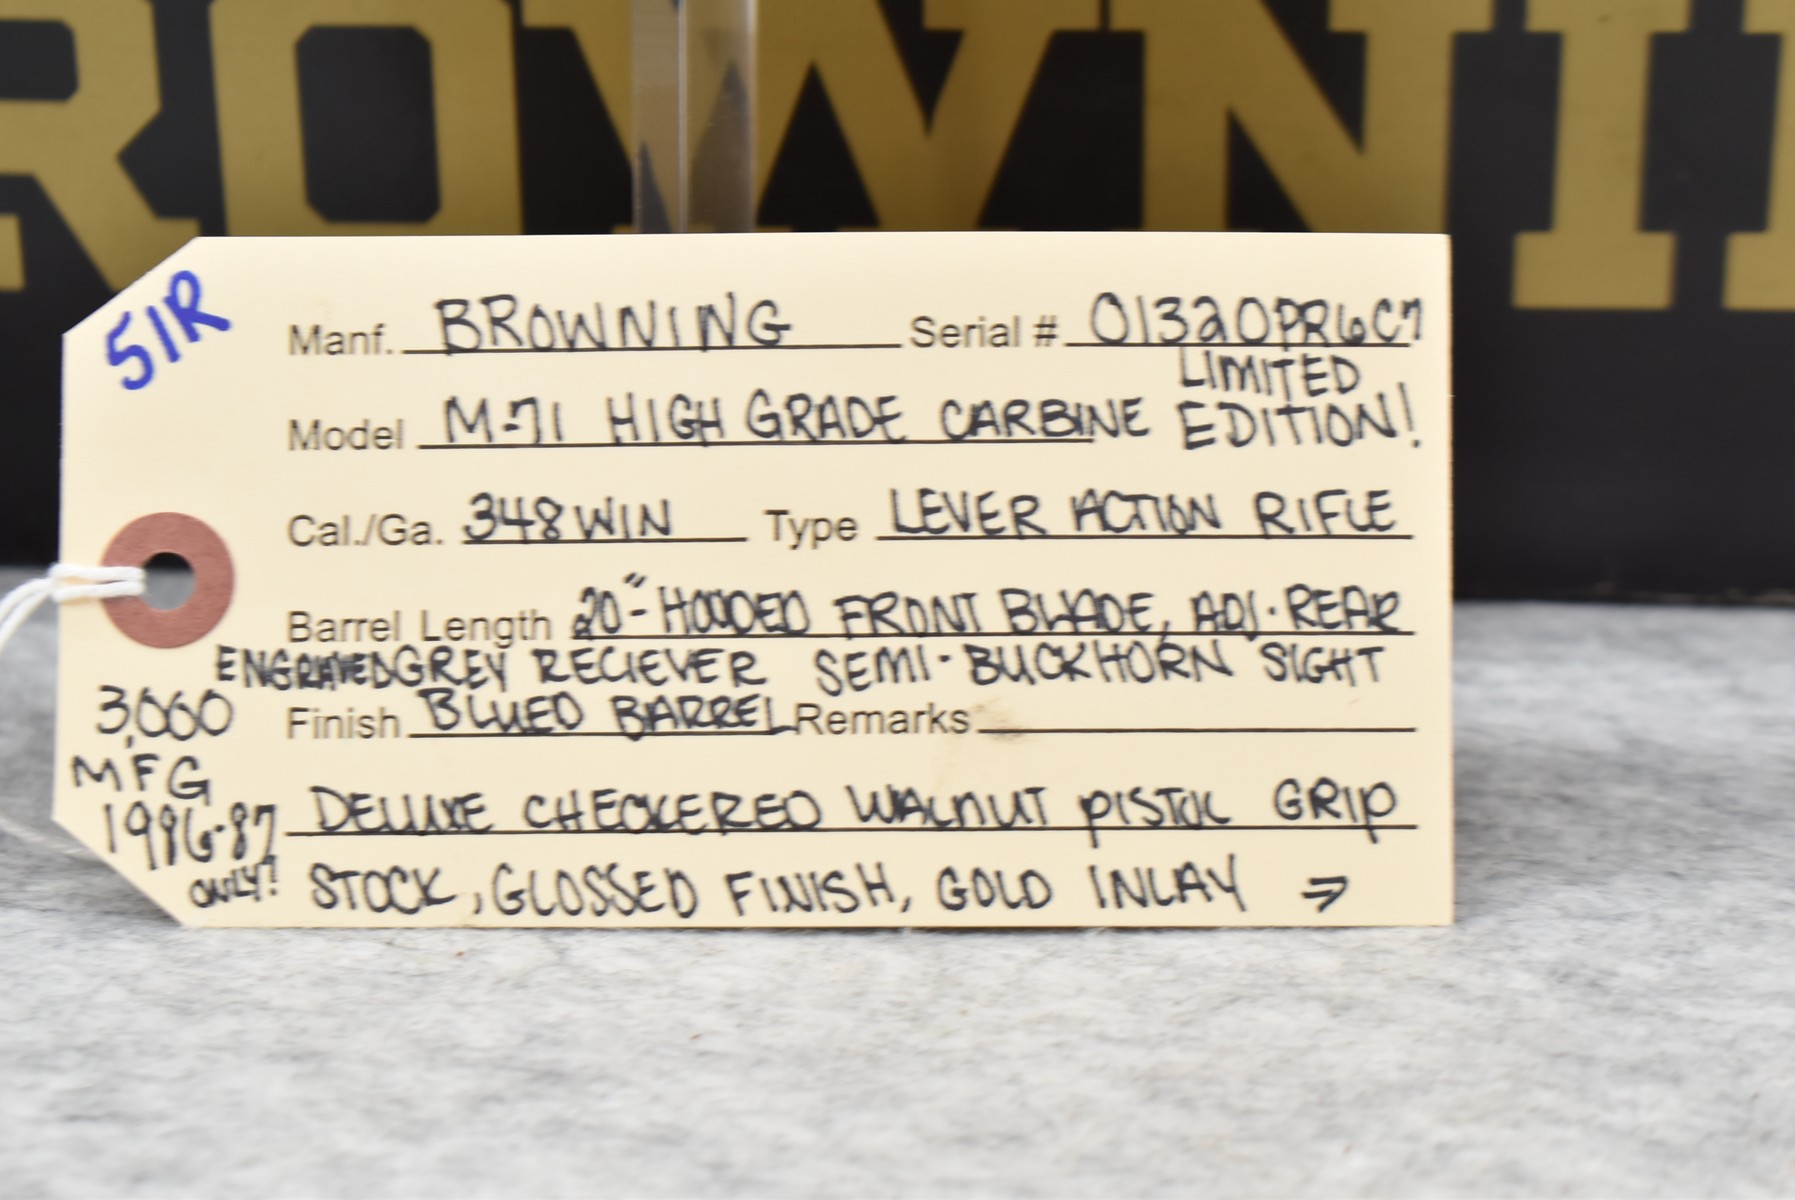 ROWNI
51R
Manf. BROWNING Serial # 01320PR6C7
LIMITED
Model M-71 HIGH GRADE CARBINE EDITION!
Cal./Ga. 348 WIN Type LEVER ACTION RIFLE
Barrel Length 20"- HOODED FRONT BLADE, ADJ. REAR
ENGRAVED GREY RECIEVER SEMI-BUCKHORN SIGHT
3,000 Finish BLUED BARREL Remarks
MFG
1986-87 DELUXE CHECKERED WALNUT PISTOL GRIP
ONLY! STOCK, GLOSSED FINISH, GOLD INLAY →